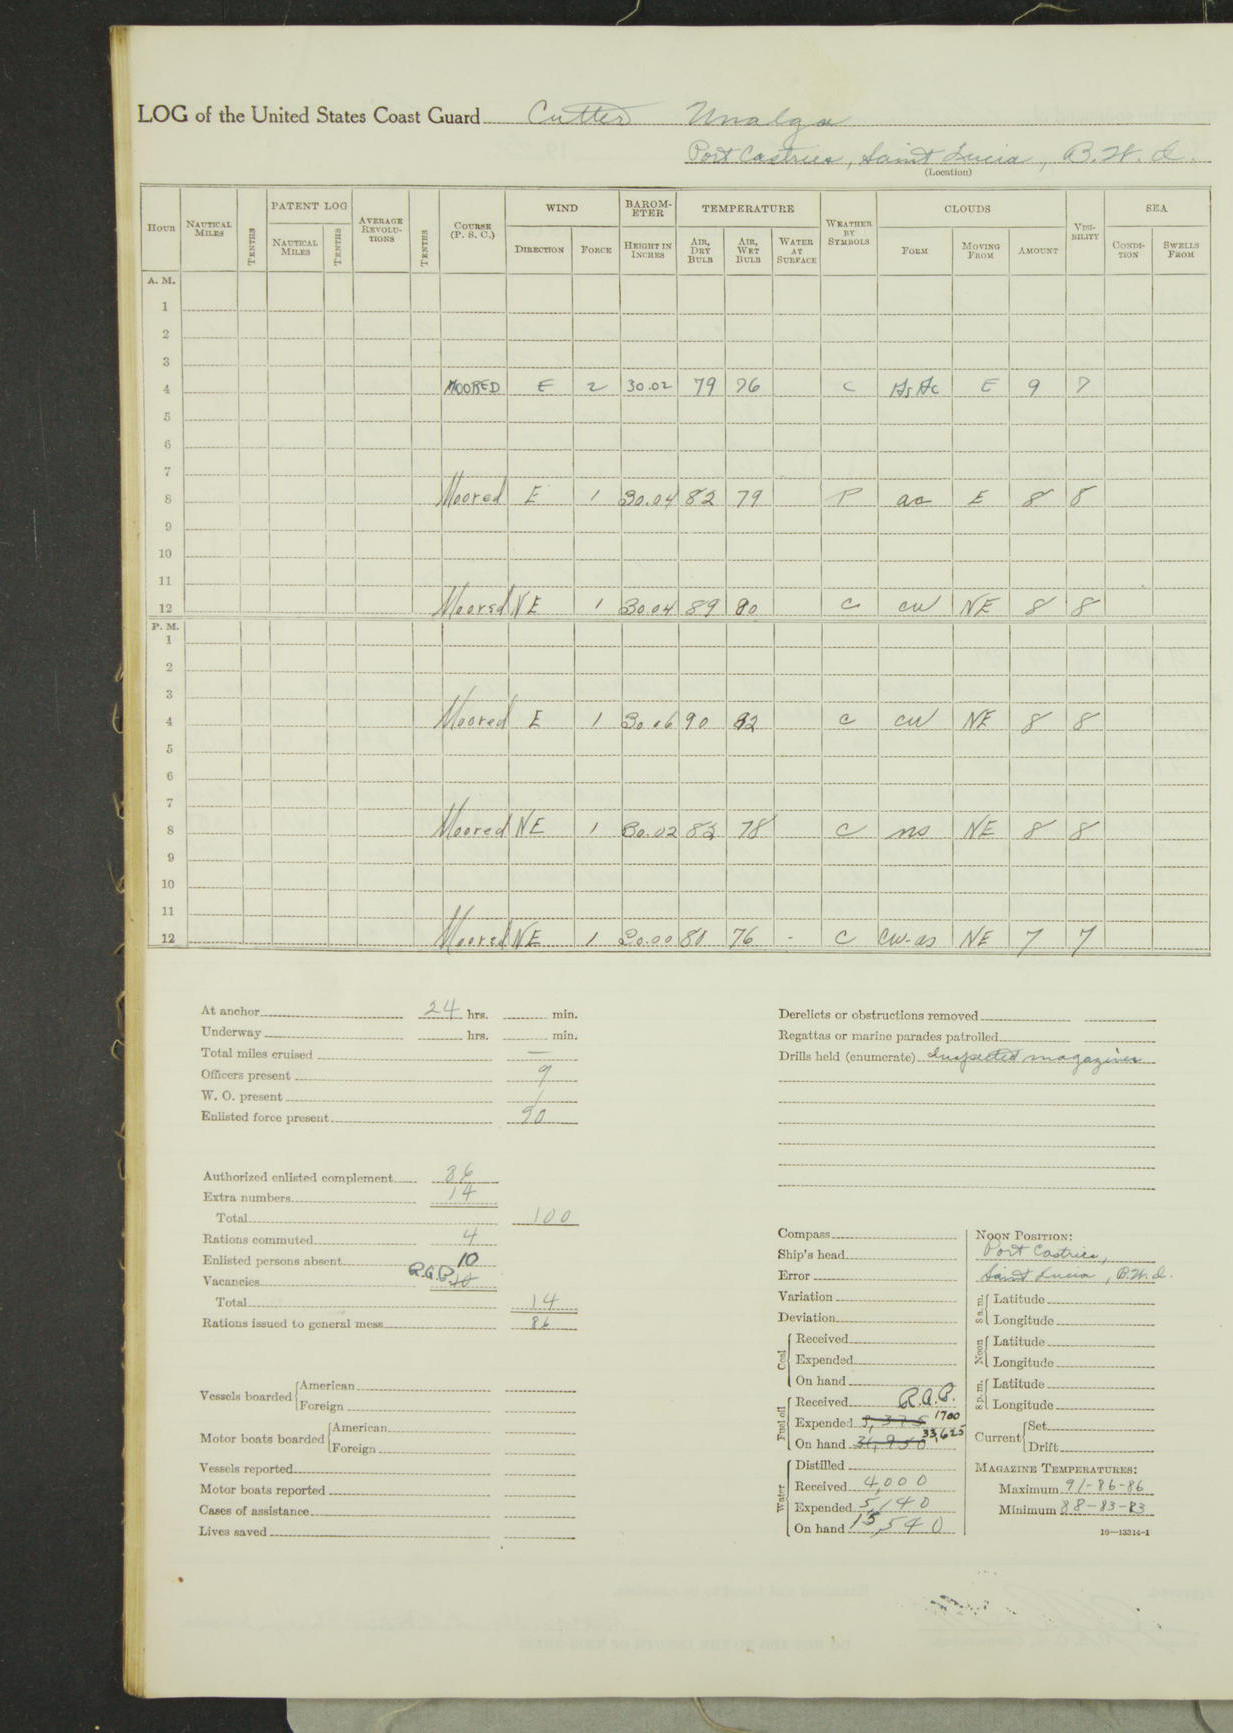 LOG of the United States Coast Guard Cutter Unalga
Port Castries, Saint Lucia, B.W.I.
(Location)
HOUR NAUTICAL MILES TENTHS PATENT LOG NAUTICAL MILES TENTHS AVERAGE REVOLUTIONS TENTHS COURSE (P. S. C.) WIND DIRECTION FORCE BAROMETER HEIGHT IN INCHES TEMPERATURE AIR, DRY BULB AIR, WET BULB WATER AT SURFACE WEATHER BY SYMBOLS CLOUDS FORM MOVING FROM AMOUNT VISIBILITY SEA CONDITION SWELLS FROM
A. M.
1
2
3
4 MOORED E 2 30.02 79 76 C As Ac E 9 7
5
6
7
8 Moored E 1 30.04 82 79 P ac E 8 8
9
10
11
12 Moored NE 1 30.04 89 80 C cu NE 8 8
P. M.
1
2
3
4 Moored E 1 30.06 90 82 C cu NE 8 8
5
6
7
8 Moored NE 1 30.02 82 78 C ns NE 8 8
9
10
11
12 Moored NE 1 30.00 80 76 - C cu-as NE 7 7
At anchor 24 hrs. min.
Underway hrs. min.
Total miles cruised —
Officers present 9
W. O. present 1
Enlisted force present 90
Authorized enlisted complement 86
Extra numbers 14
Total 100
Rations commuted 4
Enlisted persons absent 10
Vacancies R.A.P. 10
Total 14
Rations issued to general mess 86
Vessels boarded American
Foreign
Motor boats boarded American
Foreign
Vessels reported
Motor boats reported
Cases of assistance
Lives saved
Derelicts or obstructions removed
Regattas or marine parades patrolled
Drills held (enumerate) Inspected magazines
Compass
Ship's head
Error
Variation
Deviation
Coal Received
Expended
On hand
Fuel oil Received R.A.P.
Expended 3,375 1700
On hand 31,950 33,625
Water Distilled
Received 4,000
Expended 5,140
On hand 15,540
NOON POSITION:
Port Castries,
Saint Lucia, B.W.I.
8 a.m. Latitude
Longitude
Noon Latitude
Longitude
8 p.m. Latitude
Longitude
Current Set
Drift
MAGAZINE TEMPERATURES:
Maximum 91-86-86
Minimum 88-83-83
16—13214-1